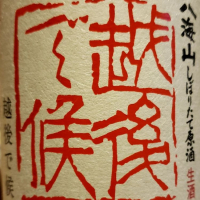 八海山しぼりたて原酒
生酒
越後
で候
越後で候